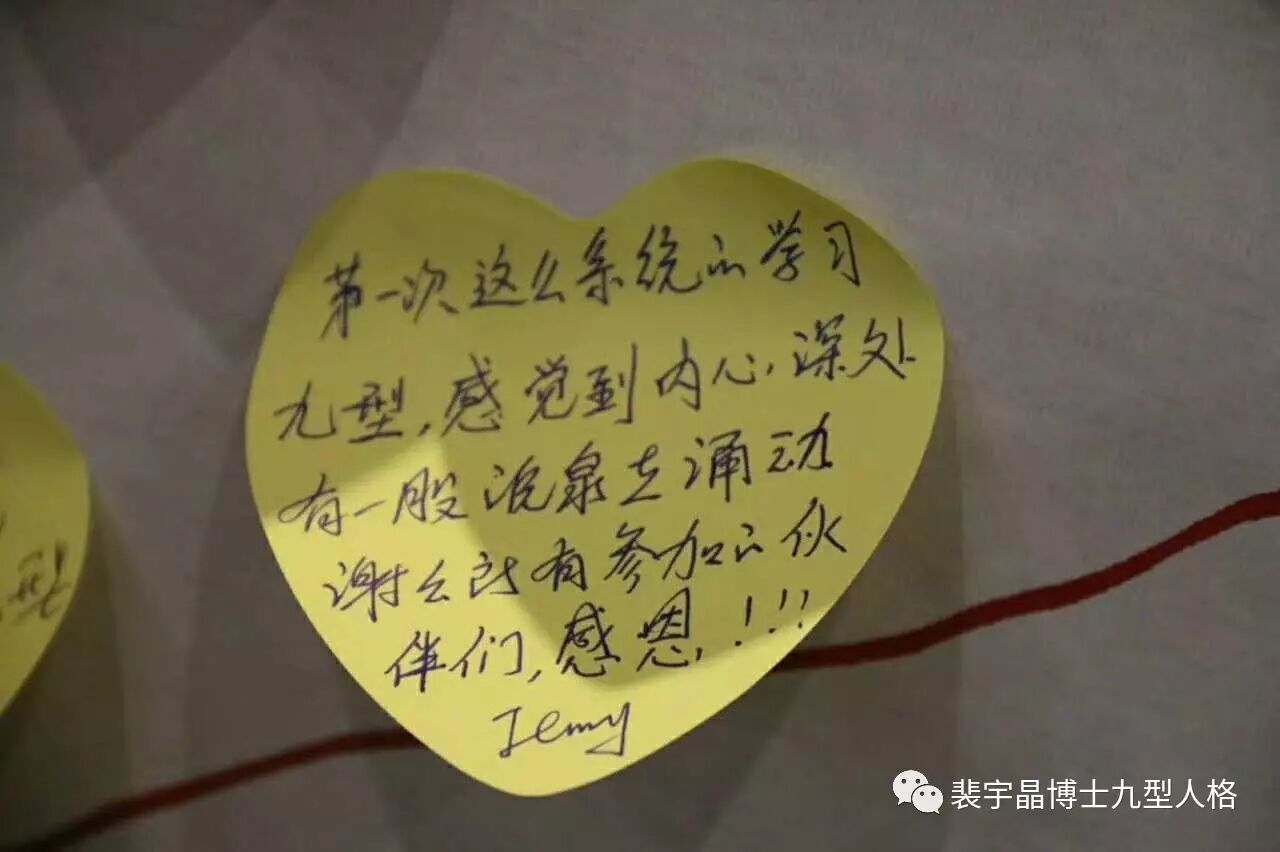 第一次这么系统的学习
九型,感觉到内心深处
有一股泥泉去涌动
谢谢所有参加的伙
伴们,感恩!!!
Jemy
型
裴宇晶博士九型人格